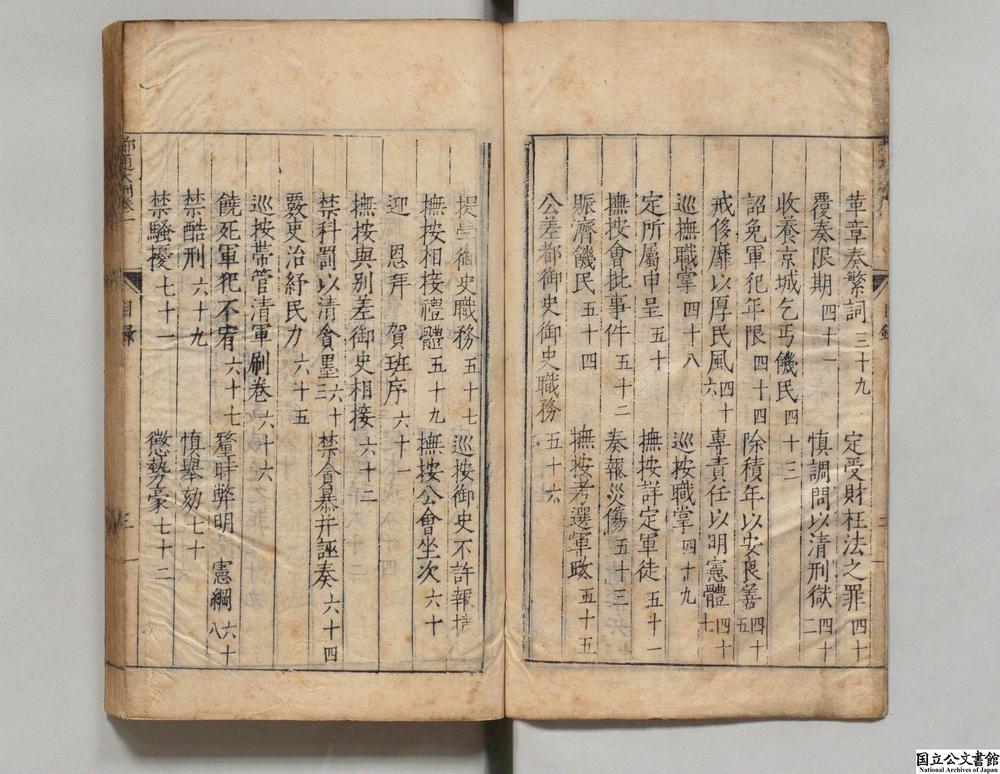 革章奏繁詞三十九 定受財枉法之罪四十
覆奏限期四十一 慎調問以清刑獄四十二
收養京城乞丐饑民四十三
詔免軍犯年限四十四 除積年以安良善四十五
戒侈靡以厚民風四十六 專責任以明憲體四十七
巡撫職掌四十八 巡按職掌四十九
定所屬申呈五十 撫按詳定軍徒五十一
撫按會批事件五十二 奏報災傷五十三
賑濟饑民五十四 撫按考選軍政五十五
公差都御史御史職務五十六
提學御史職務五十七 巡按御史不許報捷
撫按相接禮體五十九 撫按公會坐次六十
迎 恩拜 賀班序六十一
撫按與別差御史相接六十二
禁科罰以清貪墨六十三 禁貪暴并誣奏六十四
覈吏治紓民力六十五
巡按帶管清軍刷卷六十六
饒死軍犯不宥六十七 釐時弊明 憲綱六十八
禁酷刑六十九 慎舉劾七十
禁騷擾七十一 懲勢豪七十二
目錄
三
国立公文書館
National Archives of Japan